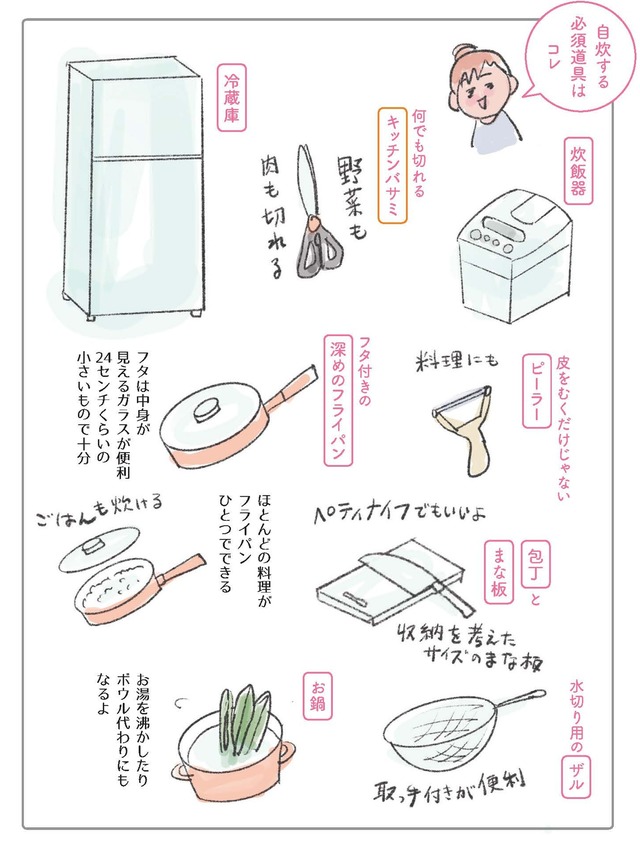 自炊する
必須道具は
コレ
炊飯器
何でも切れる
キッチンバサミ
野菜も
肉も切れる
冷蔵庫
皮をむくだけじゃない
ピーラー
料理にも
フタ付きの
深めのフライパン
フタは中身が
見えるガラスが便利
24センチくらいの
小さいもので十分
包丁と
まな板
ペティナイフでもいいよ
収納を考えた
サイズのまな板
ほとんどの料理が
フライパン
ひとつでできる
ごはんも炊ける
水切り用の
ザル
取っ手付きが便利
お鍋
お湯を沸かしたり
ボウル代わりにも
なるよ